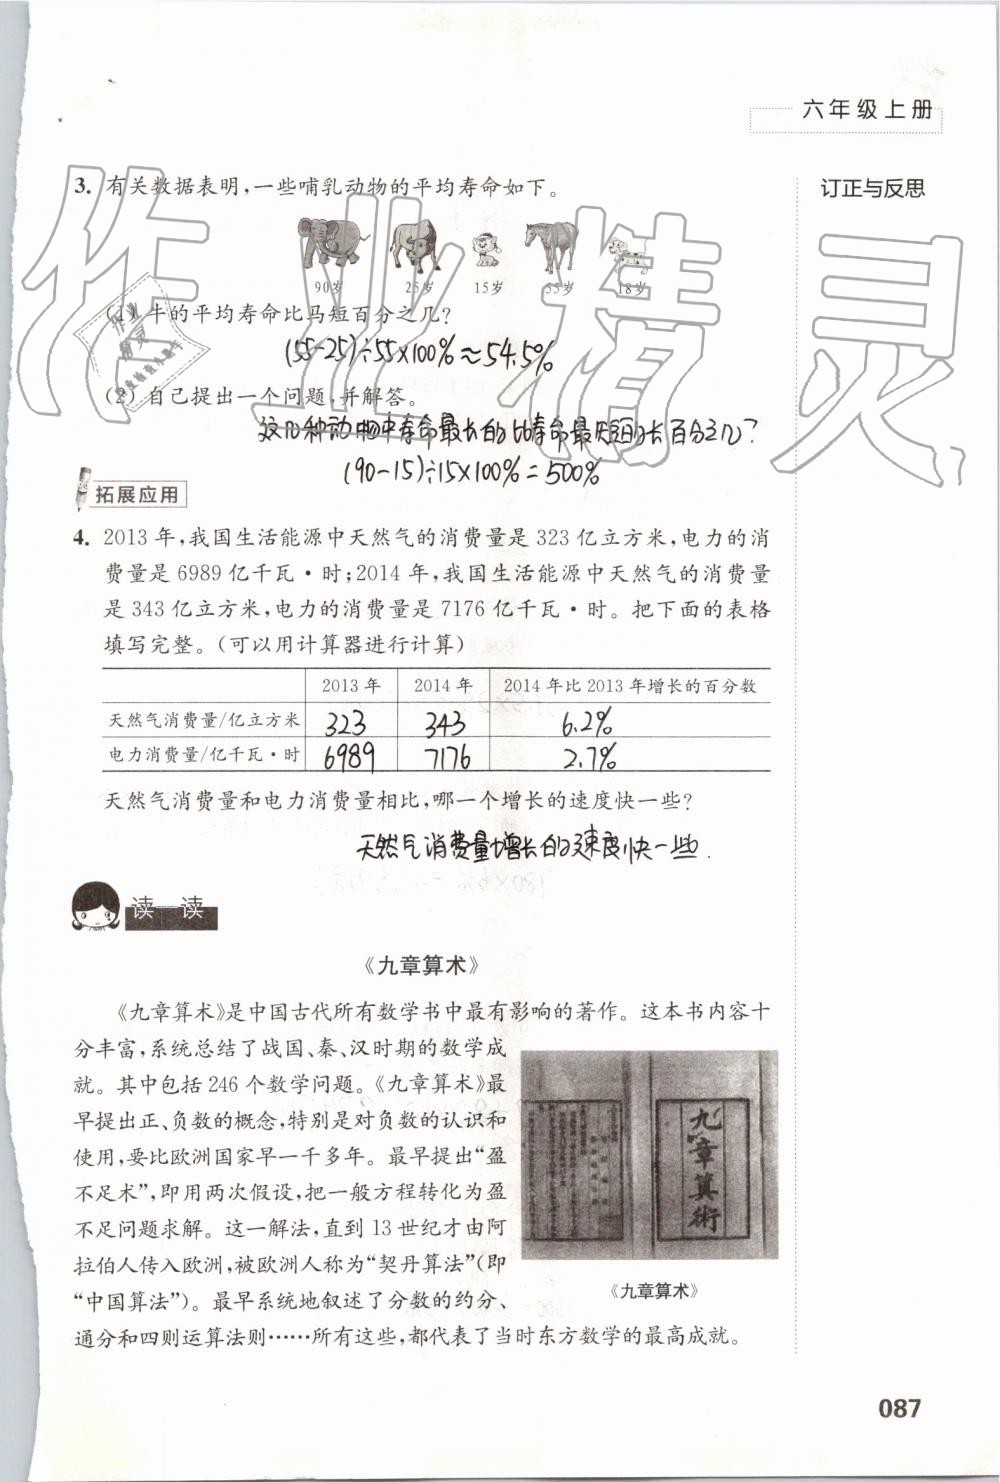 六年级上册
订正与反思
3. 有关数据表明,一些哺乳动物的平均寿命如下。
90岁 25岁 15岁 55岁 18岁
(1) 牛的平均寿命比马短百分之几?
(55-25)÷55×100%≈54.5%
(2) 自己提出一个问题,并解答。
这几种动物中寿命最长的比寿命最短的长百分之几?
(90-15)÷15×100%=500%
拓展应用
4. 2013 年,我国生活能源中天然气的消费量是 323 亿立方米,电力的消
费量是 6989 亿千瓦·时;2014 年,我国生活能源中天然气的消费量
是 343 亿立方米,电力的消费量是 7176 亿千瓦·时。把下面的表格
填写完整。(可以用计算器进行计算)
2013 年 2014 年 2014 年比 2013 年增长的百分数
天然气消费量/亿立方米 323 343 6.2%
电力消费量/亿千瓦·时 6989 7176 2.7%
天然气消费量和电力消费量相比,哪一个增长的速度快一些?
天然气消费量增长的速度快一些.
读一读
《九章算术》
《九章算术》是中国古代所有数学书中最有影响的著作。这本书内容十
分丰富,系统总结了战国、秦、汉时期的数学成
就。其中包括 246 个数学问题。《九章算术》最
早提出正、负数的概念,特别是对负数的认识和
使用,要比欧洲国家早一千多年。最早提出“盈
不足术”,即用两次假设,把一般方程转化为盈
不足问题求解。这一解法,直到 13 世纪才由阿
拉伯人传入欧洲,被欧洲人称为“契丹算法”(即
“中国算法”)。最早系统地叙述了分数的约分、
通分和四则运算法则……所有这些,都代表了当时东方数学的最高成就。
九章算術
《九章算术》
087
作业精灵